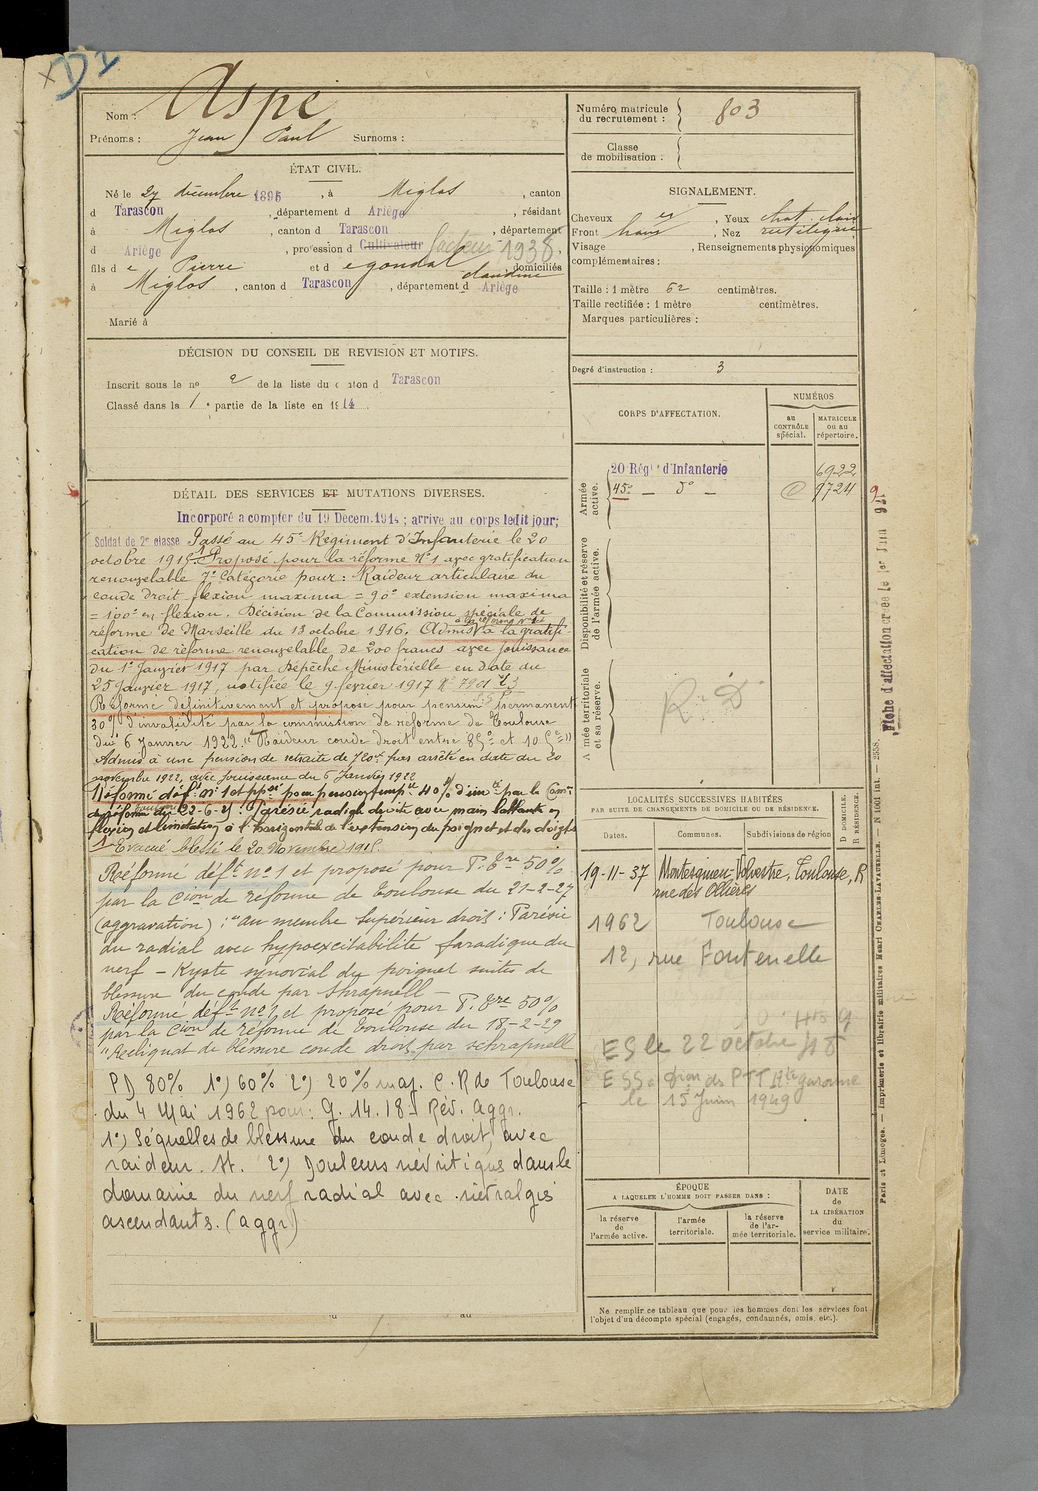 D1
Nom : Aspe
Prénoms : Jean Paul Surnoms :
ÉTAT CIVIL.
Né le 27 décembre 1895, à Miglos, canton
d Tarascon, département d Ariège, résidant
à Miglos, canton d Tarascon, département
d Ariège, profession d Cultivateur facteur 1938
fils de Pierre et de gondal claudine domiciliés
à Miglos, canton d Tarascon, département d Ariège
Marié à
DÉCISION DU CONSEIL DE REVISION ET MOTIFS.
Inscrit sous le no 2 de la liste du canton d Tarascon
Classé dans la 1e partie de la liste en 1914.
DÉTAIL DES SERVICES ET MUTATIONS DIVERSES.
Incorporé a compter du 19 Decem. 1914 ; arrive au corps ledit jour;
Soldat de 2e classe Passé au 45e Régiment d'Infanterie le 20
octobre 1915. Proposé pour la réforme No 1 avec gratification
renouvelable 7e Catégorie pour : Raideur articulaire du
coude droit flexion maxima = 90° extension maxima
= 100° en flexion. Décision de la Commission spéciale de
réforme de Marseille du 13 octobre 1916. Admis à la réforme No 1 et à la gratifi-
cation de réforme renouvelable de 200 francs avec jouissance
du 1er Janvier 1917 par Dépêche Ministérielle en date du
25 Janvier 1917, notifiée le 9 février 1917 No 7901
Réformé définitivement et proposé pour pension permanente
30% d'invalidité par la commission de réforme de Toulouse
du 6 Janvier 1922. "Raideur coude droit entre 85° et 105°"
Admis à une pension de retraite de 720f par arrêté en date du 20
novembre 1922, avec jouissance du 6 Janvier 1922
Réformé déft no 1 et ppsé pour pension tempre 40% d'inté par la Comon
de réforme de Toulouse du 23-6-25. Parésie radiale droite avec main tombante en
flexion et limitation à l'horizontale de l'extension du poignet et des doigts
Evacué blessé le 20 Novembre 1915
Réformé déft no 1 et proposé pour P. Tre 50%
par la Cion de réforme de Toulouse du 21-2-27
(aggravation) : "au membre supérieur droit : Parésie
du radial avec hypoexcitabilité faradique du
nerf - Kyste synovial du poignet suites de
blessure du coude par shrapnell -
Réformé déft no 1, et proposé pour P. Tre 50%
par la Cion de réforme de Toulouse du 18-2-29
"Reliquat de blessure coude droit par schrapnell
PD 80% 1°) 60% 2°) 20% maj. C.R de Toulouse
du 4 Mai 1962 pour : G. 14.18- Rév. aggr.
1°) Séquelles de blessure du coude droit, avec
raideur. At. 2°) Douleurs névritiques dans le
domaine du nerf radial avec névralgies
ascendants. (aggr)
Numéro matricule du recrutement : 803
Classe de mobilisation :
SIGNALEMENT.
Cheveux, Yeux chat. clair
Front haut, Nez rectiligne
Visage, Renseignements physiognomiques
complémentaires :
Taille : 1 mètre 62 centimètres.
Taille rectifiée : 1 mètre centimètres.
Marques particulières :
Degré d'instruction : 3
CORPS D'AFFECTATION.
NUMÉROS
au CONTRÔLE spécial.
MATRICULE ou au répertoire.
Armée active.
20 Régt d'Infanterie 6922
45e - do - 9724
Disponibilité et réserve de l'armée active.
Armée territoriale et sa réserve.
R. D
Fiche d'affectation créée le 1er Juin
LOCALITÉS SUCCESSIVES HABITÉES
PAR SUITE DE CHANGEMENTS DE DOMICILE OU DE RÉSIDENCE.
D DOMICILE.
R RÉSIDENCE.
Dates. Communes. Subdivisions de région
19-11-37 Montesquieu-Volvestre, Toulouse, R
rue des Ollières
1962 Toulouse
12, rue Fontenelle
ES le 22 octobre 48
ESS à Dion des PTT Hte garonne
le 15 Juin 1949
ÉPOQUE
A LAQUELLE L'HOMME DOIT PASSER DANS :
la réserve de l'armée active.
l'armée territoriale.
la réserve de l'armée territoriale.
DATE
de
LA LIBÉRATION
du
service militaire.
Ne remplir ce tableau que pour les hommes dont les services font
l'objet d'un décompte spécial (engagés, condamnés, omis, etc.).
Paris et Limoges. — Imprimerie et librairie militaires Henri CHARLES-LAVAUZELLE. — No 601 int. — 2558.